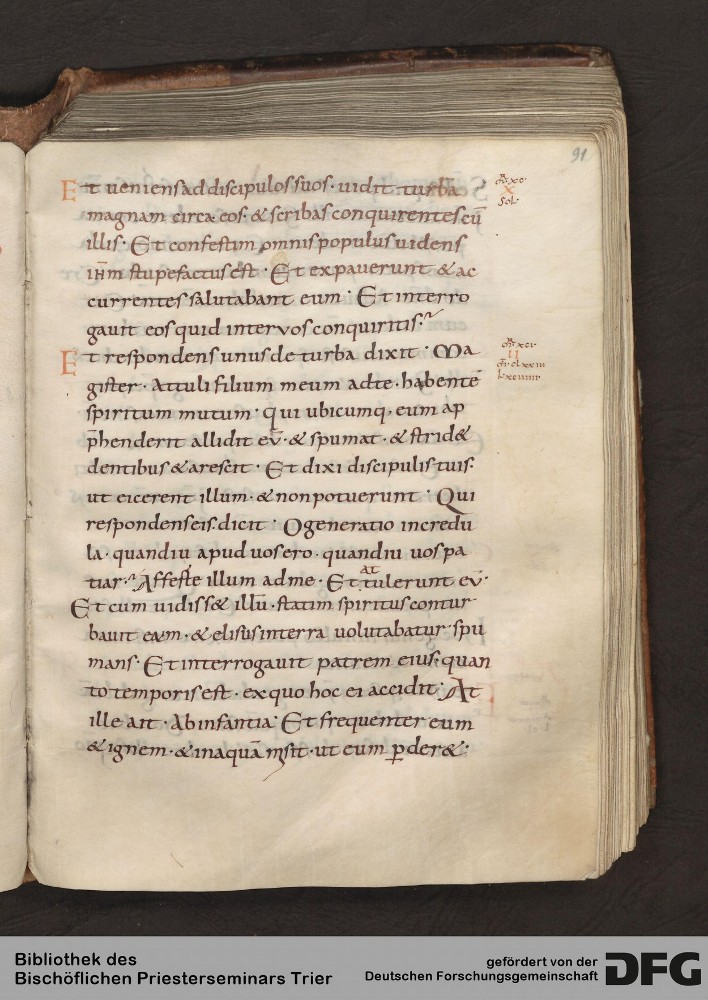 91
Et ueniens ad discipulos suos · uidit turba
magnam circa eos · & scribas conquirentes cū
illis · Et confestim omnis populus uidens
ihm stupefactus est · Et expauerunt & ac
currentes salutabant eum · Et interro
gauit eos quid inter vos conquiritis ·
Et respondens unus de turba dixit · Ma
gister · Attuli filium meum ad te · habentē
spiritum mutum · qui ubicumq, eum ap
p̄henderit allidit eū · & spumat · & strid&
dentibus & arescit · Et dixi discipulis tuis ·
ut eicerent illum · & non potuerunt · Qui
respondens eis dicit · O generatio incredu
la · quandiu apud uos ero · quandiu uos pa
tiar · Afferte illum ad me · Et attulerunt eū ·
Et cum uidiss& illū · statim spiritus contur
bauit eum · & elisus in terra uolutabatur spu
mans · Et interrogauit patrem eius · quan
to temporis est · ex quo hoc ei accidit · At
ille ait · Ab infantia · Et frequenter eum
& ignem · & in aquā misit · ut eum ꝑder& ·
Bibliothek des
Bischöflichen Priesterseminars Trier
gefördert von der
Deutschen Forschungsgemeinschaft
DFG